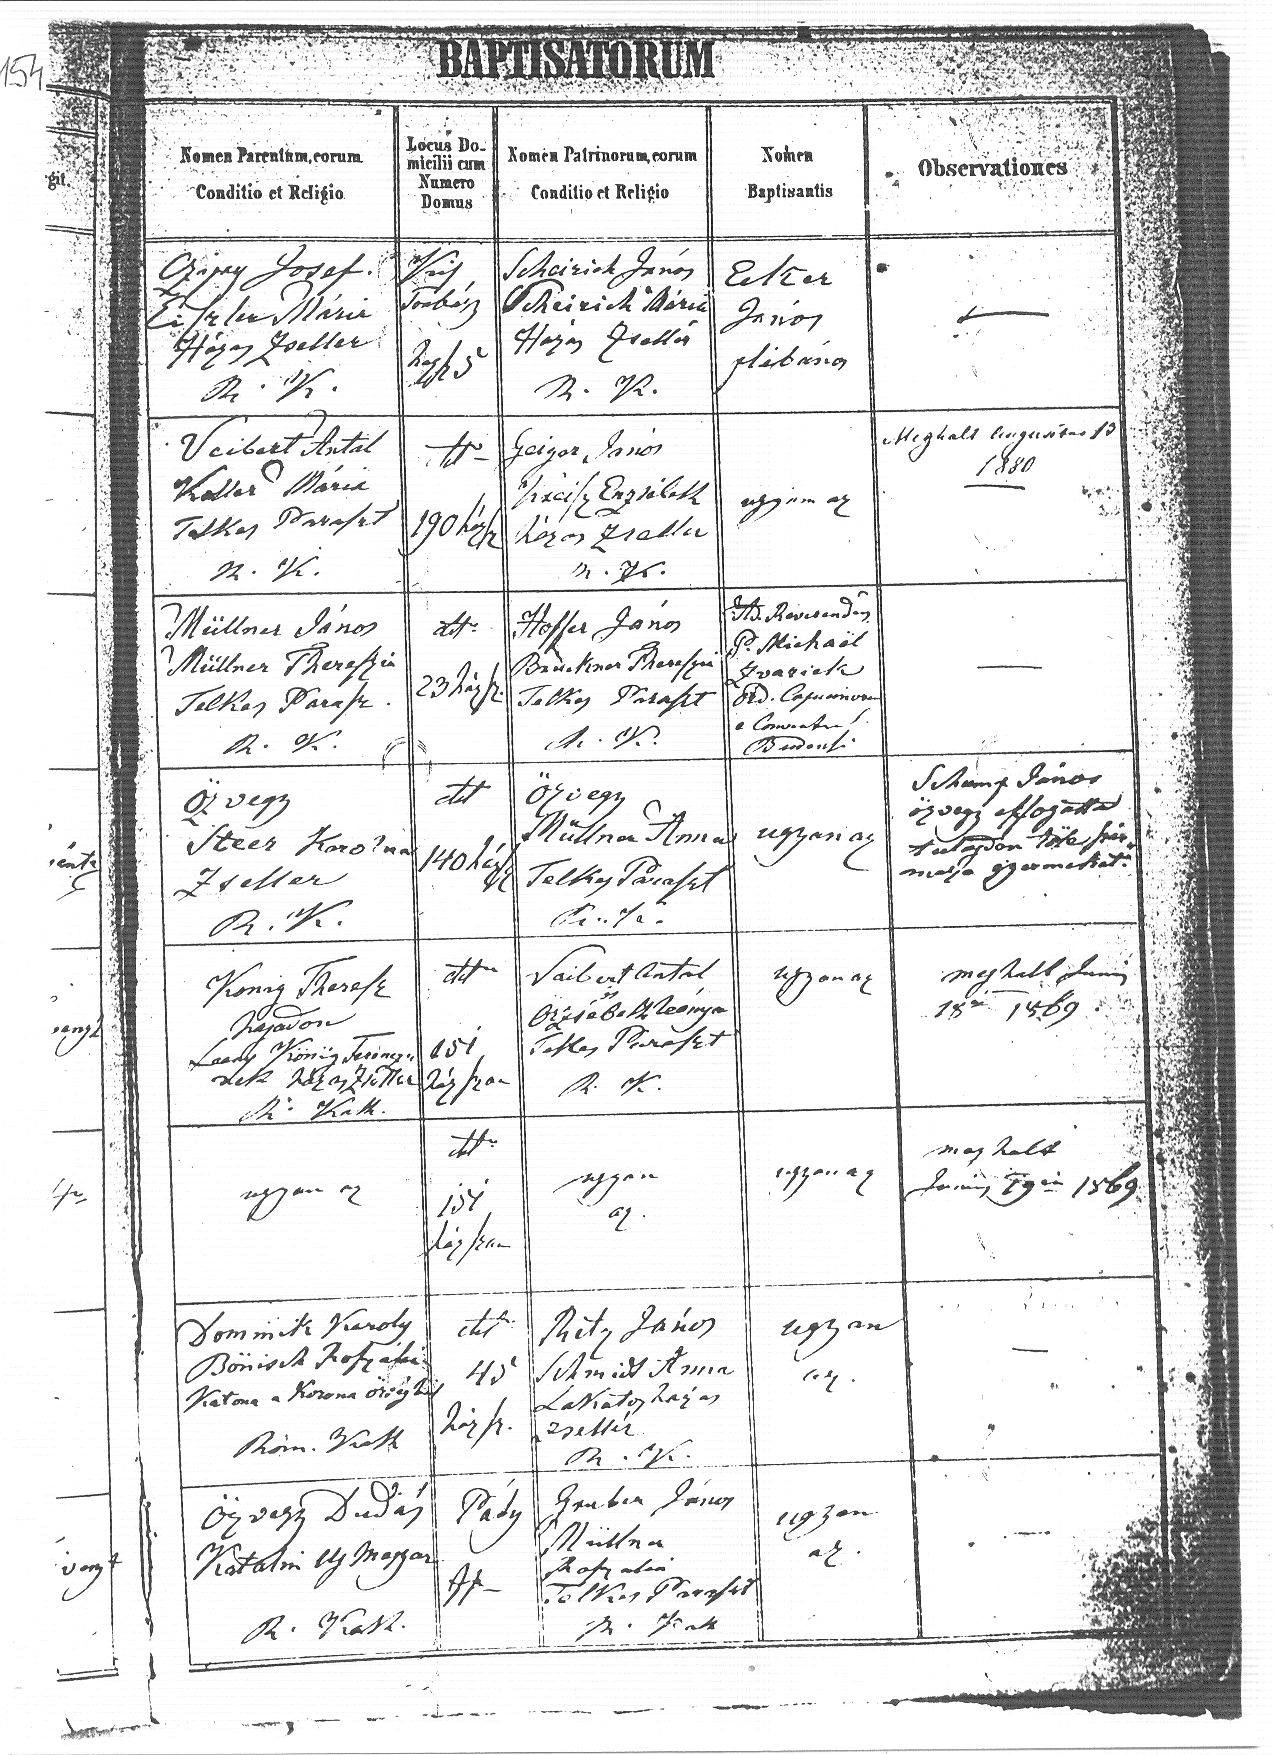 154
BAPTISATORUM
Nomen Parentum, eorum
Conditio et Religio
Locus Do-
micilii cum
Numero
Domus
Nomen Patrinorum, eorum
Conditio et Religio
Nomen
Baptisantis
Observationes
git.
Josef.
Mária
Házas Zsellér
R. K.
Kis
Torbágy
5
Scheirich János
Scheirich Mária
Házas Zsellér
R. K.
Ecker
János
plébános
Veibert Antal
Keller Mária
Telkes Paraszt
R. K.
dtto
190 házsz
Geiger János
Erzsébeth
házas Zsellér
R. K.
ugyan az
Meghalt Augusztus 13
1880
Müllner János
Müllner Thereszia
Telkes Parasz.
R. K.
dtto
23 házsz.
Hoffer János
Brückner Thereszia
Telkes Paraszt
R. K.
Ad. Reverendus
P. Michaël
Zvarick
Ord. Capucinorum
e Conventu
Budensi
Özvegy
Steer Karolina
Zsellér
R. K.
dtto
140 házsz
özvegy
Müllner Anna
Telkes Paraszt
R. K.
ugyan az
Schamp János
özvegy elfogatta
gyermekét
König Theresz
hajadon
Leány König Ferencz-
nek házas Zsellér
R. Kath.
dtto
151
házszan
Vaibert Antal
Örzsébeth leánya
Telkes Paraszt
R. K.
ugyan az
meghalt Juni
18án 1869.
ugyan az
dtto
151
házszan
ugyan
az.
ugyan az
meghalt
Junius 19én 1869
Dominik Karoly
Bönisch Rozália
Katona a Korona őrségbl
Róm. Kath
dtto
45
házsz.
Retz János
Schmidt Anna
Lakatos házas
zsellér
R. K.
ugyan
az.
Özvegy Dudás
Katalin Uj Magyar
R. Kath.
Pády
Gruber János
Müllner
Rozalia
Telkes Paraszt
R. Kath
ugyan
az.